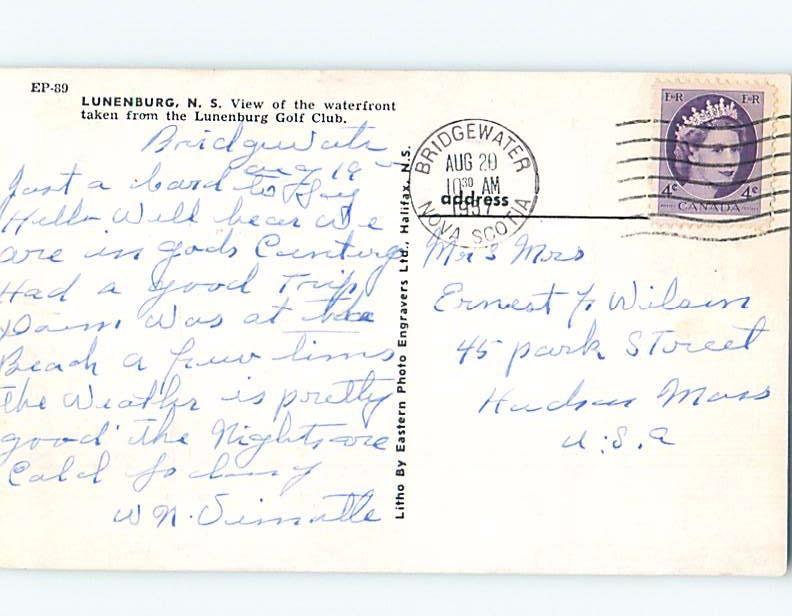 EP-89
LUNENBURG, N. S. View of the waterfront
taken from the Lunenburg Golf Club.
Bridgwater
aug 19
Just a card to Say
Hello Well hear We
are in gods Cuntury
Had a good Trip
was at the
Beach a few tims
the Weather is pretty
good the Nights are
Cold
W N.
Litho By Eastern Photo Engravers Ltd., Halifax, N.S.
BRIDGEWATER
AUG 20
10 30 AM
1957
NOVA SCOTIA
address
E R E R
4¢ 4¢
CANADA
Mr & Mrs
Ernest F Wilson
45 park Street
Hudson Mass
U.S.A